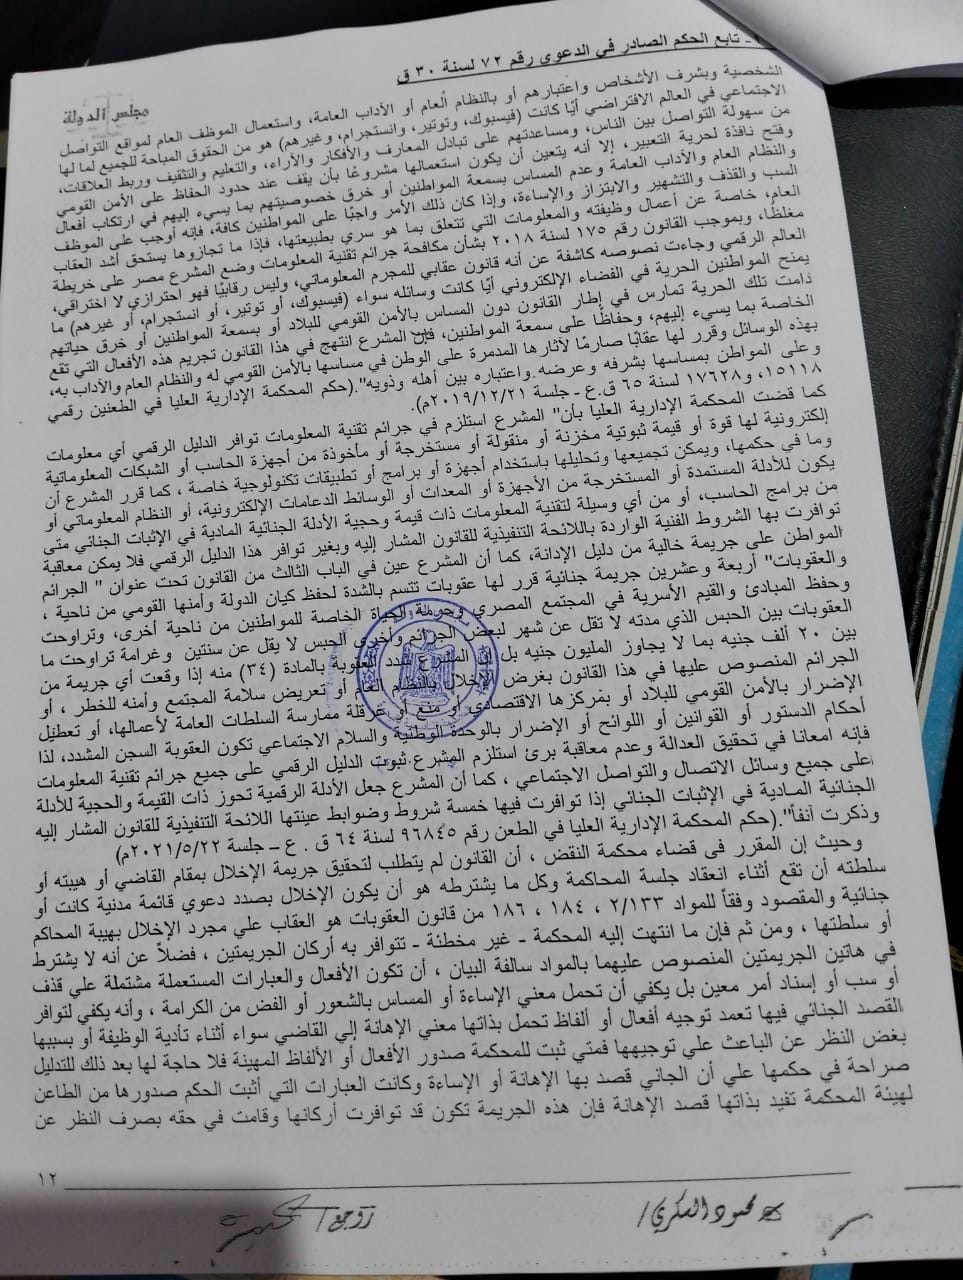 ـ تابع الحكم الصادر في الدعوى رقم ٧٢ لسنة ٣٠ ق
مجلس الدولة
الشخصية وبشرف الأشخاص واعتبارهم أو بالنظام العام أو الآداب العامة، واستعمال الموظف العام لمواقع التواصل
الاجتماعي في العالم الافتراضي أيًا كانت (فيسبوك، وتوتير، وانستجرام، وغيرهم) هو من الحقوق المباحة للجميع لما لها
من سهولة التواصل بين الناس، ومساعدتهم على تبادل المعارف والأفكار والآراء، والتعليم والتثقيف وربط العلاقات،
وفتح نافذة لحرية التعبير، إلا أنه يتعين أن يكون استعمالها مشروعًا بأن يقف عند حدود الحفاظ على الأمن القومي
والنظام العام والآداب العامة وعدم المساس بسمعة المواطنين أو خرق خصوصيتهم بما يسيء إليهم في ارتكاب أفعال
السب والقذف والتشهير والابتزاز والإساءة، وإذا كان ذلك الأمر واجبًا على المواطنين كافة، فإنه أوجب على الموظف
العام، خاصة عن أعمال وظيفته والمعلومات التي تتعلق بما هو سري بطبيعتها، فإذا ما تجاوزها يستحق أشد العقاب
مغلظًا، وبموجب القانون رقم ١٧٥ لسنة ٢٠١٨ بشأن مكافحة جرائم تقنية المعلومات وضع المشرع مصر على خريطة
العالم الرقمي وجاءت نصوصه كاشفة عن أنه قانون عقابي للمجرم المعلوماتي، وليس رقابيًا فهو احترازي لا اختراقي،
يمنح المواطنين الحرية في الفضاء الإلكتروني أيًا كانت وسائله سواء (فيسبوك، أو توتير، أو انستجرام، أو غيرهم) ما
دامت تلك الحرية تمارس في إطار القانون دون المساس بالأمن القومي للبلاد أو بسمعة المواطنين أو خرق حياتهم
الخاصة بما يسيء إليهم، وحفاظًا على سمعة المواطنين، فإن المشرع انتهج في هذا القانون تجريم هذه الأفعال التي تقع
بهذه الوسائل وقرر لها عقابًا صارمًا لآثارها المدمرة على الوطن في مساسها بالأمن القومي له والنظام العام والآداب به،
وعلى المواطن بمساسها بشرفه وعرضه واعتباره بين أهله وذويه".(حكم المحكمة الإدارية العليا في الطعنين رقمي
١٥١١٨، و١٧٦٢٨ لسنة ٦٥ ق.ع ـ جلسة ٢٠١٩/١٢/٢١م).
كما قضت المحكمة الإدارية العليا بأن" المشرع استلزم في جرائم تقنية المعلومات توافر الدليل الرقمي أي معلومات
إلكترونية لها قوة أو قيمة ثبوتية مخزنة أو منقولة أو مستخرجة أو مأخوذة من أجهزة الحاسب أو الشبكات المعلوماتية
وما في حكمها، ويمكن تجميعها وتحليلها باستخدام أجهزة أو برامج أو تطبيقات تكنولوجية خاصة ، كما قرر المشرع أن
يكون للأدلة المستمدة أو المستخرجة من الأجهزة أو المعدات أو الوسائط الدعامات الإلكترونية، أو النظام المعلوماتي أو
من برامج الحاسب، أو من أي وسيلة لتقنية المعلومات ذات قيمة وحجية الأدلة الجنائية المادية في الإثبات الجنائي متى
توافرت بها الشروط الفنية الواردة باللائحة التنفيذية للقانون المشار إليه وبغير توافر هذا الدليل الرقمي فلا يمكن معاقبة
المواطن على جريمة خالية من دليل الإدانة، كما أن المشرع عين في الباب الثالث من القانون تحت عنوان " الجرائم
والعقوبات" أربعة وعشرين جريمة جنائية قرر لها عقوبات تتسم بالشدة لحفظ كيان الدولة وأمنها القومي من ناحية ،
وحفظ المبادئ والقيم الأسرية في المجتمع المصري وحرمة الحياة الخاصة للمواطنين من ناحية أخرى، وتراوحت
العقوبات بين الحبس الذي مدته لا تقل عن شهر لبعض الجرائم وأخرى الحبس لا يقل عن سنتين وغرامة تراوحت ما
بين ٢٠ ألف جنيه بما لا يجاوز المليون جنيه بل إن المشرع شدد العقوبة بالمادة (٣٤) منه إذا وقعت أي جريمة من
الجرائم المنصوص عليها في هذا القانون بغرض الإخلال بالنظام العام أو تعريض سلامة المجتمع وأمنه للخطر ، أو
الإضرار بالأمن القومي للبلاد أو بمركزها الاقتصادي أو منع أو عرقلة ممارسة السلطات العامة لأعمالها، أو تعطيل
أحكام الدستور أو القوانين أو اللوائح أو الإضرار بالوحدة الوطنية والسلام الاجتماعي تكون العقوبة السجن المشدد، لذا
فإنه امعانا في تحقيق العدالة وعدم معاقبة برئ استلزم المشرع ثبوت الدليل الرقمي على جميع جرائم تقنية المعلومات
على جميع وسائل الاتصال والتواصل الاجتماعي ، كما أن المشرع جعل الأدلة الرقمية تحوز ذات القيمة والحجية للأدلة
الجنائية المادية في الإثبات الجنائي إذا توافرت فيها خمسة شروط وضوابط عينتها اللائحة التنفيذية للقانون المشار إليه
وذكرت آنفاً".(حكم المحكمة الإدارية العليا في الطعن رقم ٩٦٨٤٥ لسنة ٦٤ ق . ع ــ جلسة ٢٠٢١/٥/٢٢م)
وحيث إن المقرر فى قضاء محكمة النقض ، أن القانون لم يتطلب لتحقيق جريمة الإخلال بمقام القاضي أو هيبته أو
سلطته أن تقع أثناء انعقاد جلسة المحاكمة وكل ما يشترطه هو أن يكون الإخلال بصدد دعوي قائمة مدنية كانت أو
جنائية والمقصود وفقاً للمواد ٢/١٣٣ ، ١٨٤ ، ١٨٦ من قانون العقوبات هو العقاب علي مجرد الإخلال بهيبة المحاكم
أو سلطتها ، ومن ثم فإن ما انتهت إليه المحكمة - غير مخطئة - تتوافر به أركان الجريمتين ، فضلاً عن أنه لا يشترط
في هاتين الجريمتين المنصوص عليهما بالمواد سالفة البيان ، أن تكون الأفعال والعبارات المستعملة مشتملة علي قذف
أو سب أو إسناد أمر معين بل يكفي أن تحمل معني الإساءة أو المساس بالشعور أو الغض من الكرامة ، وأنه يكفي لتوافر
القصد الجنائي فيها تعمد توجيه أفعال أو ألفاظ تحمل بذاتها معني الإهانة إلي القاضي سواء أثناء تأدية الوظيفة أو بسببها
بغض النظر عن الباعث علي توجيهها فمتي ثبت للمحكمة صدور الأفعال أو الألفاظ المهينة فلا حاجة لها بعد ذلك للتدليل
صراحة في حكمها علي أن الجاني قصد بها الإهانة أو الإساءة وكانت العبارات التي أثبت الحكم صدورها من الطاعن
لهيئة المحكمة تفيد بذاتها قصد الإهانة فإن هذه الجريمة تكون قد توافرت أركانها وقامت في حقه بصرف النظر عن
١٢
محمود السكري/